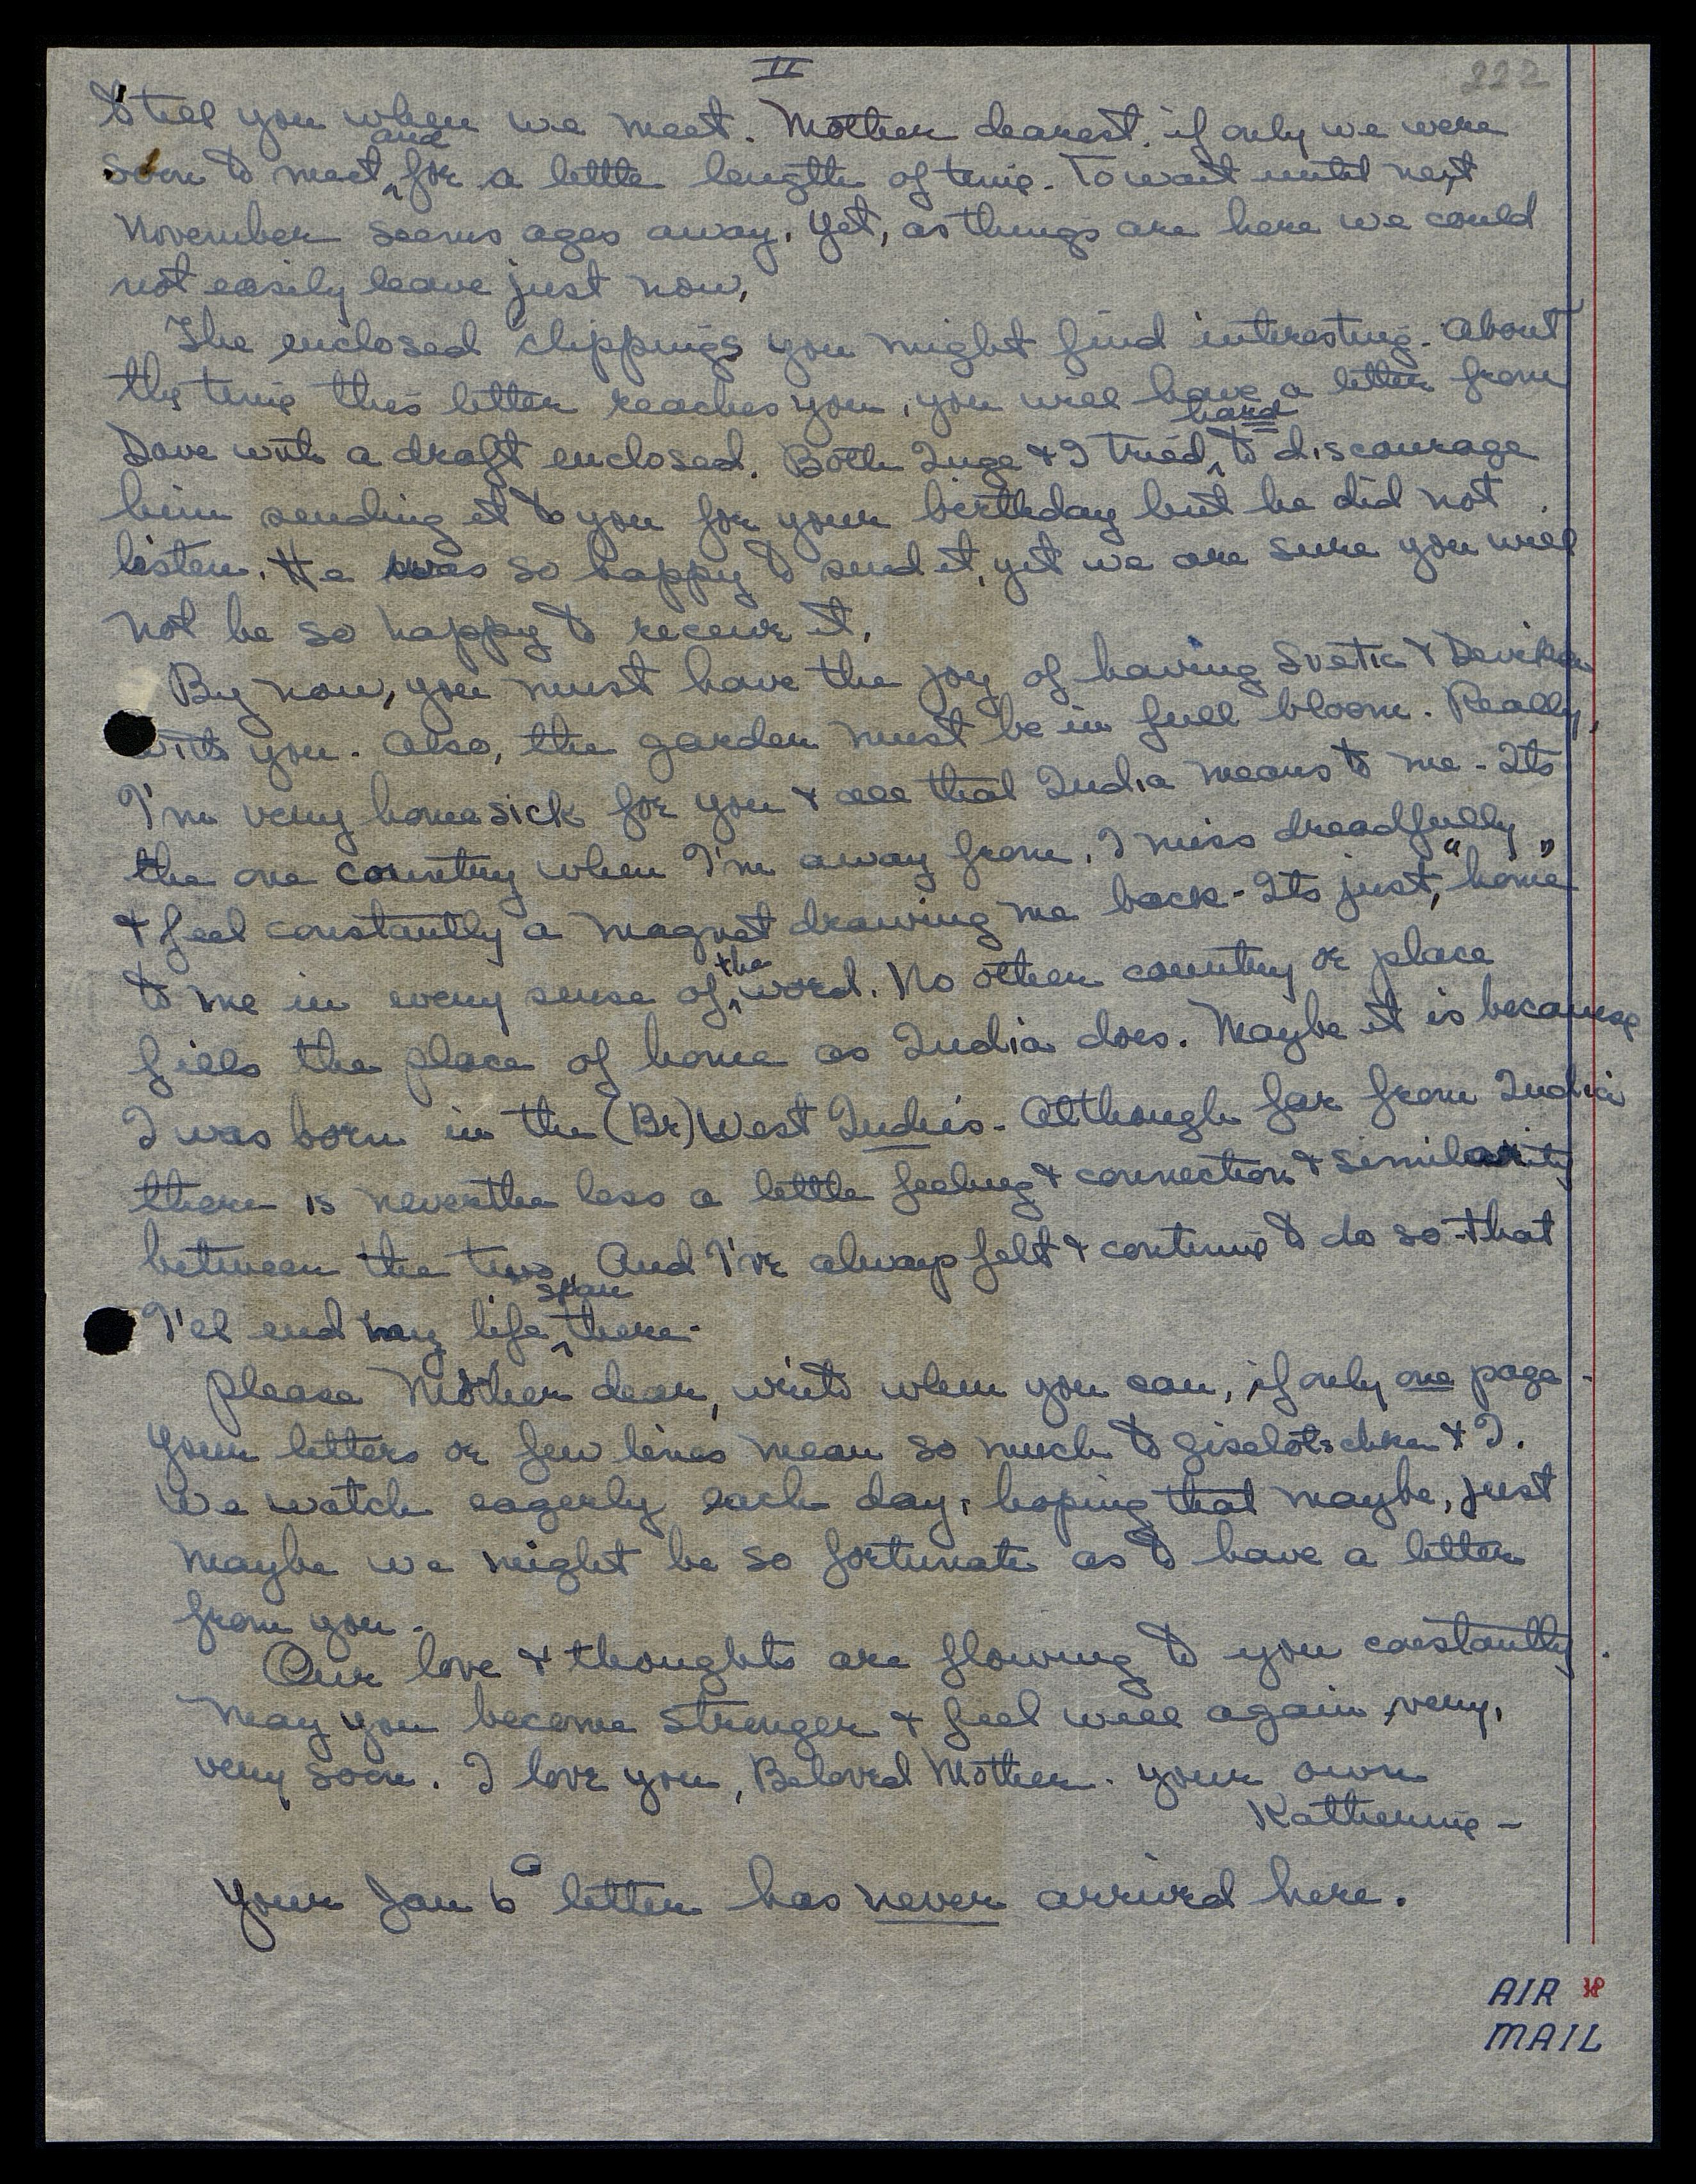 II
222
to tell you when we meet. Mother dearest, if only we were
soon to meet, and for a little length of time. To wait until next
November seems ages away. Yet, as things are here we could
not easily leave just now.
The enclosed clippings you might find interesting. About
the time this letter reaches you, you will have a letter from
Dave with a draft enclosed. Both Inge & I tried hard to discourage
him sending it to you for your birthday but he did not
listen. He was so happy to send it, yet we are sure you will
not be so happy to receive it.
By now, you must have the joy of having Svetic & Devika
with you. Also, the garden must be in full bloom. Really,
I'm very homesick for you & all that India means to me - Its
the one country when I'm away from, I miss dreadfully
& feel constantly a magnet drawing me back - Its just, "home"
to me in every sense of the word. No other country or place
fills the place of home as India does. Maybe it is because
I was born in the (Br) West Indies. Although far from India
there is never the less a little feeling & connection & similarity
between the two. And I've always felt & continue to do so - that
I'll end my life span there.
Please Mother dear, write when you can, if only one page.
Your letters or few lines mean so much to Giselotschka & I.
We watch eagerly each day, hoping that maybe, just
maybe we might be so fortunate as to have a letter
from you.
Our love & thoughts are flowing to you constantly.
May you become stronger & feel well again, very,
very soon. I love you, Beloved Mother. Your own
Katherine -
Your Jan 6 letter has never arrived here.
AIR
MAIL